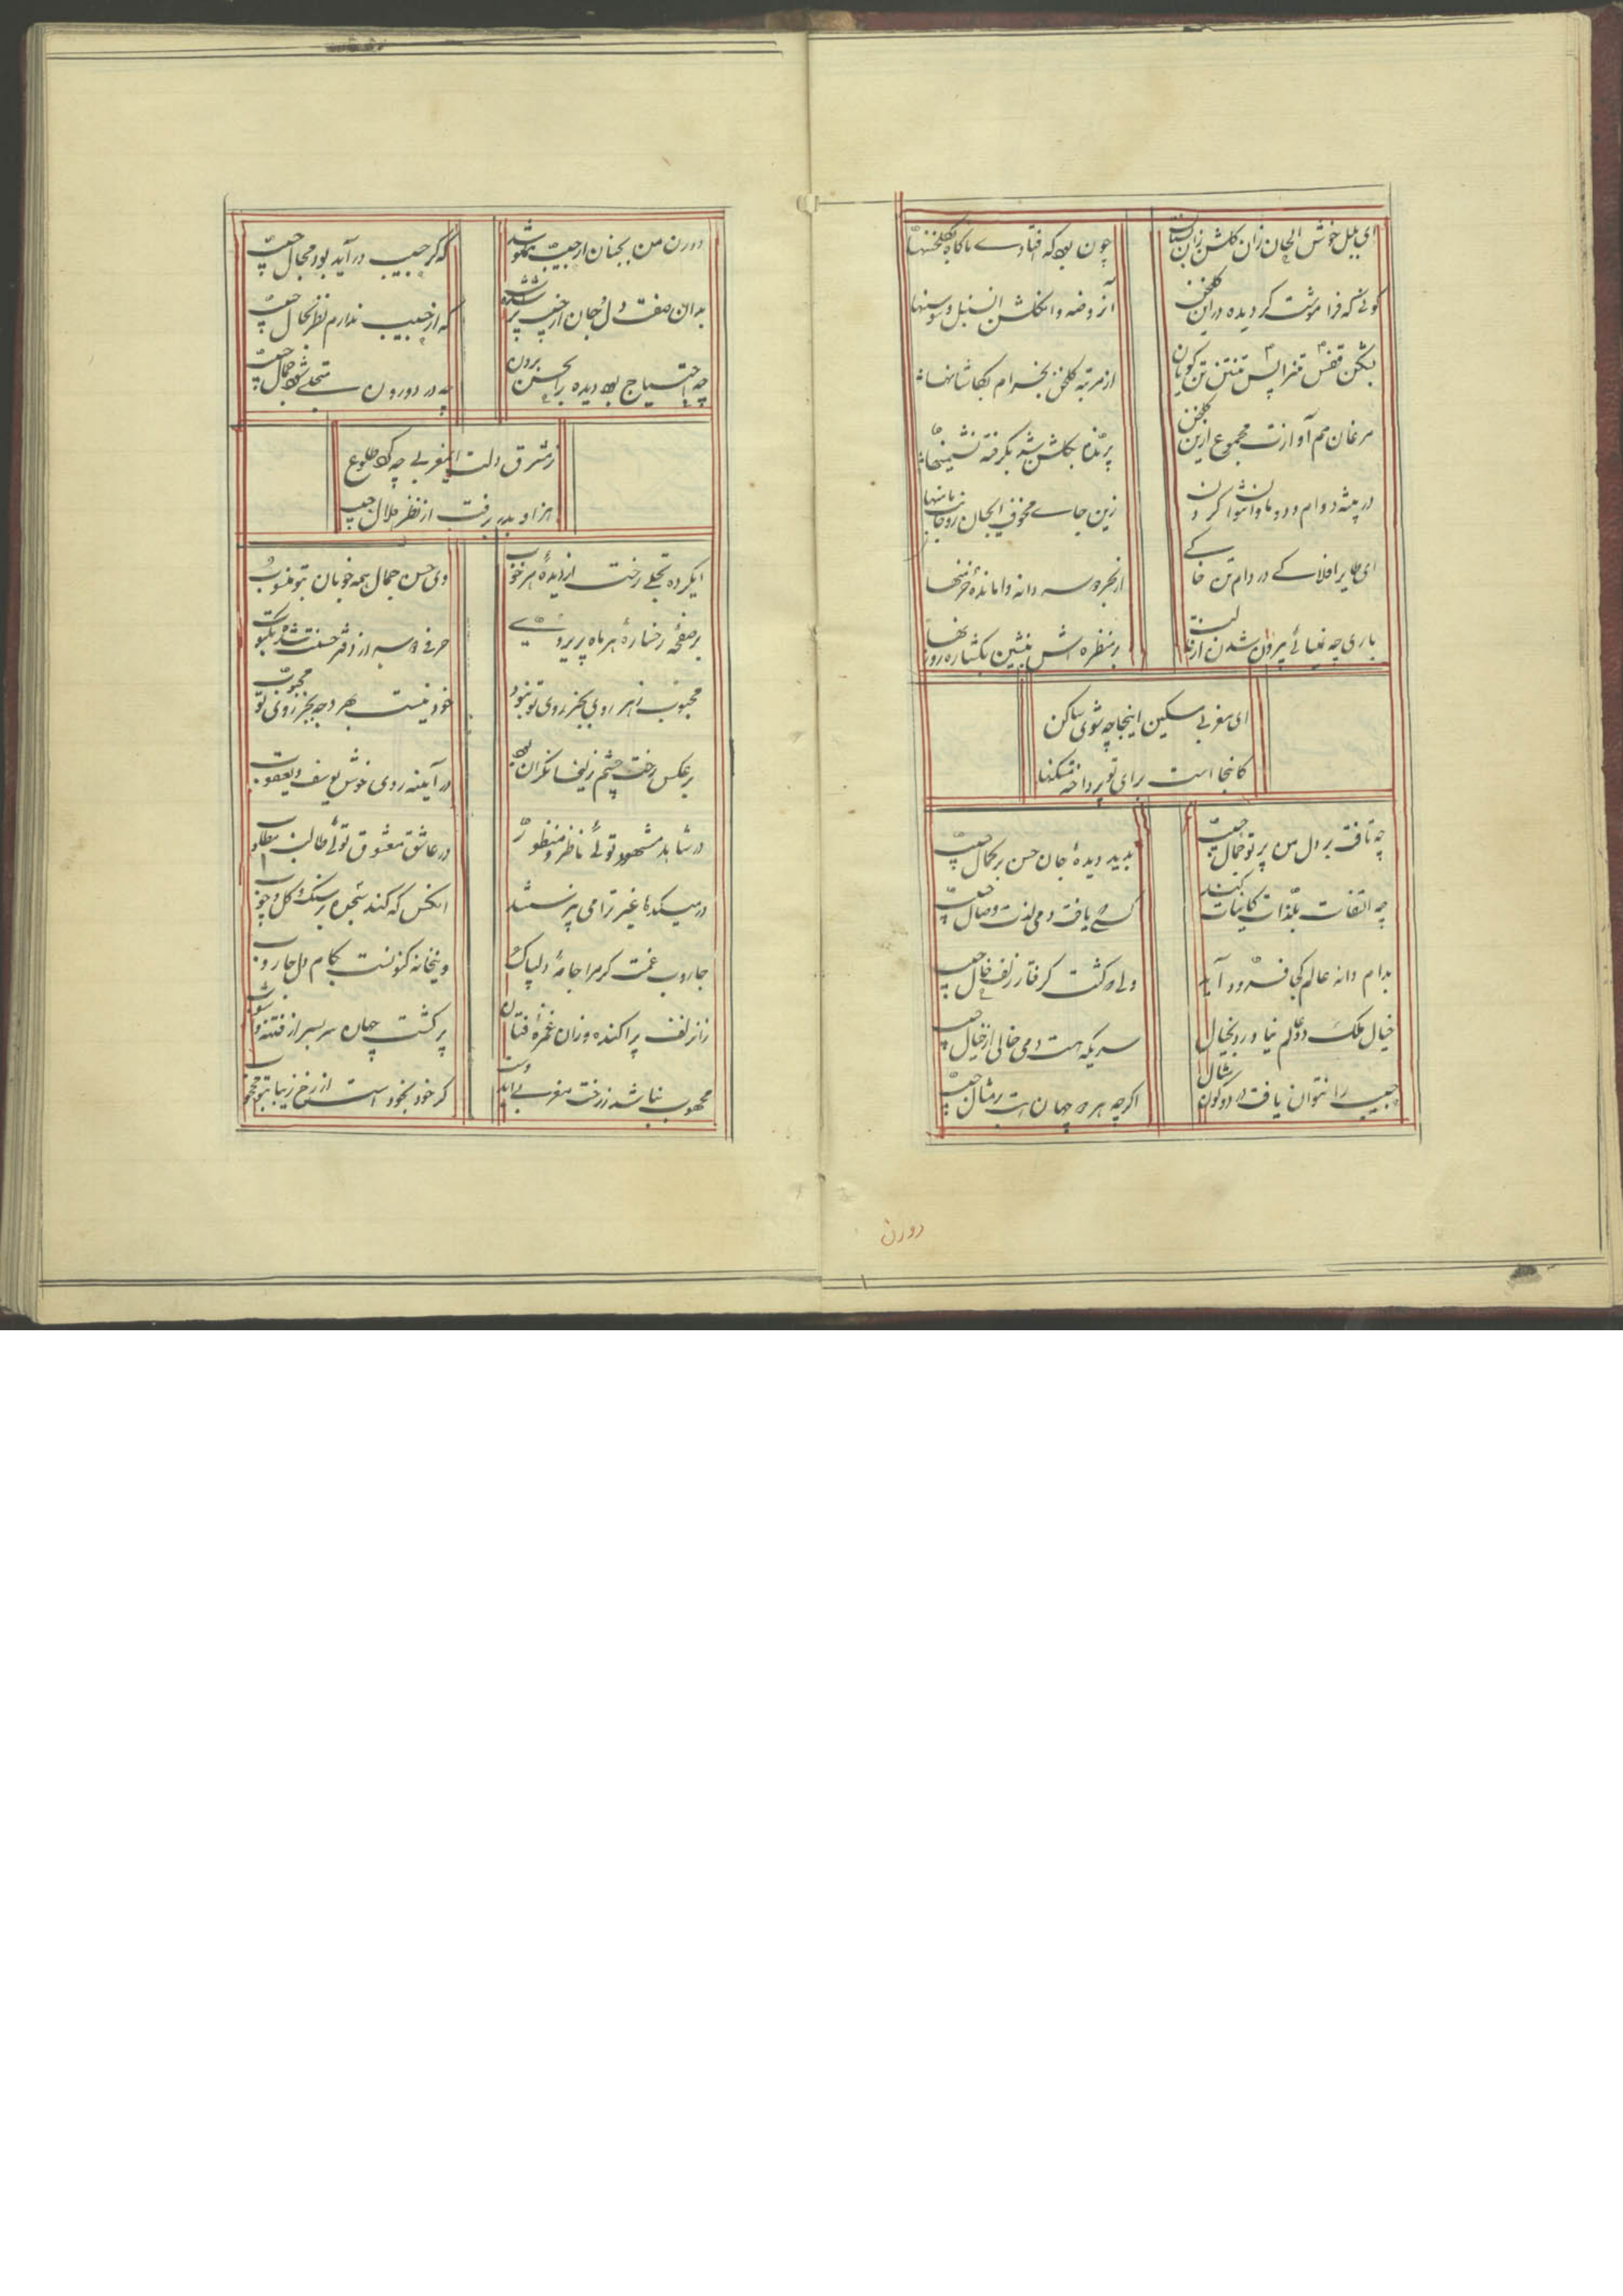 ای بلبل خوش الحان زان گلشن زان بستان
چون بود که افتادے ناکاه بکلخنها
گوئی که فراموشت کردیده درین کلخن
آن روضه وان کلشن ان سنبل وسوسنها
بشکن قفس تن را پس تنتن تن کویان
از مرتبه کلخن بخرام بکاشانها
مرغان هم آوازت مجموع ازین کلخن
پرنده بکلشن شد بکرفته نشیمنها
در بیشه دوام و دد ماوا نتوان کردن
زین جاے مخوف ایجان رو جانب مامنها
ای طایر افلاکے در دام تن خاکے
از بهر دو سه دانه وامانده ز خرمنها
باری چو نمیائے بیرون شدن از قالب
بر منظره اش بنشین بکشاره روزنها
ای مغربے مسکین اینجا چه شوی ساکن
کانجا است برای تو پرداخته مسکنها
چه تافت بر دل من پرتو جمال حبیب
بدید دیدهٔ جان حسن بر کمال حبیب
چه التفات بلذات کاینات کند
کسے که یافت دمی لذت وصال حبیب
بدام دانه عالم کجا فرود آید
دلے که کشت کرفتار زلف خال حبیب
خیال ملک دو عالم نیاورد بخیال
سریکه هست دمی خالی از خیال حبیب
حبیب را نتوان یافت در دو کون مثال
اکرچه هر دو جهان است بر مثال حبیب
دورن
درون من بجنان از حبیب مملو شد
که کر حبیب در آید بود مجال حبیب
بدان صفت دل و جان از حبیب پر شده
که از حبیب ندارم نظر بحال حبیب
چه احتیاج بود دیده را بحسن برون
چه در دورون متجلے شود جمال حبیب
ز مشرق دلت ای مغربے چه کرد طلوع
هزار بدر برفت از نظر هلال حبیب
ایکرده تجلے رخت از دیدهٔ هر خوب
وی حسن جمال همه خوبان بتو منسوب
بر صفحهٔ رخسارهٔ هر ماه پریروئے
حرفے دو سه از دفتر حسنت شده مکتوب
محبوب ز هر روی بجز روی تو نبود
خود نیست بهر وجه بجز روی تو محبوب
بر عکس رخت چشم زلیخا نکران بود
در آینه روی خوش یوسف و یعقوب
در شاهد مشهود توئے ناظر و منظور
در عاشق معشوق توئے طالب مطلوب
در میکدها غیر ترا می نپرستند
انکس که کند سجده بر سنک و کل و چوب
جاروب غمت کرد مرا جامهٔ دلپاک
وینخانه کنونست بکام دل جاروب
زان زلف پراکنده وزان غمزهٔ فتان
پر کشت جهان سربسر از فتنه و آشوب
محجوب نباشد ز رخت مغربے ایدوست
کر خود بخود است از رخ زیبا بتو محجوب